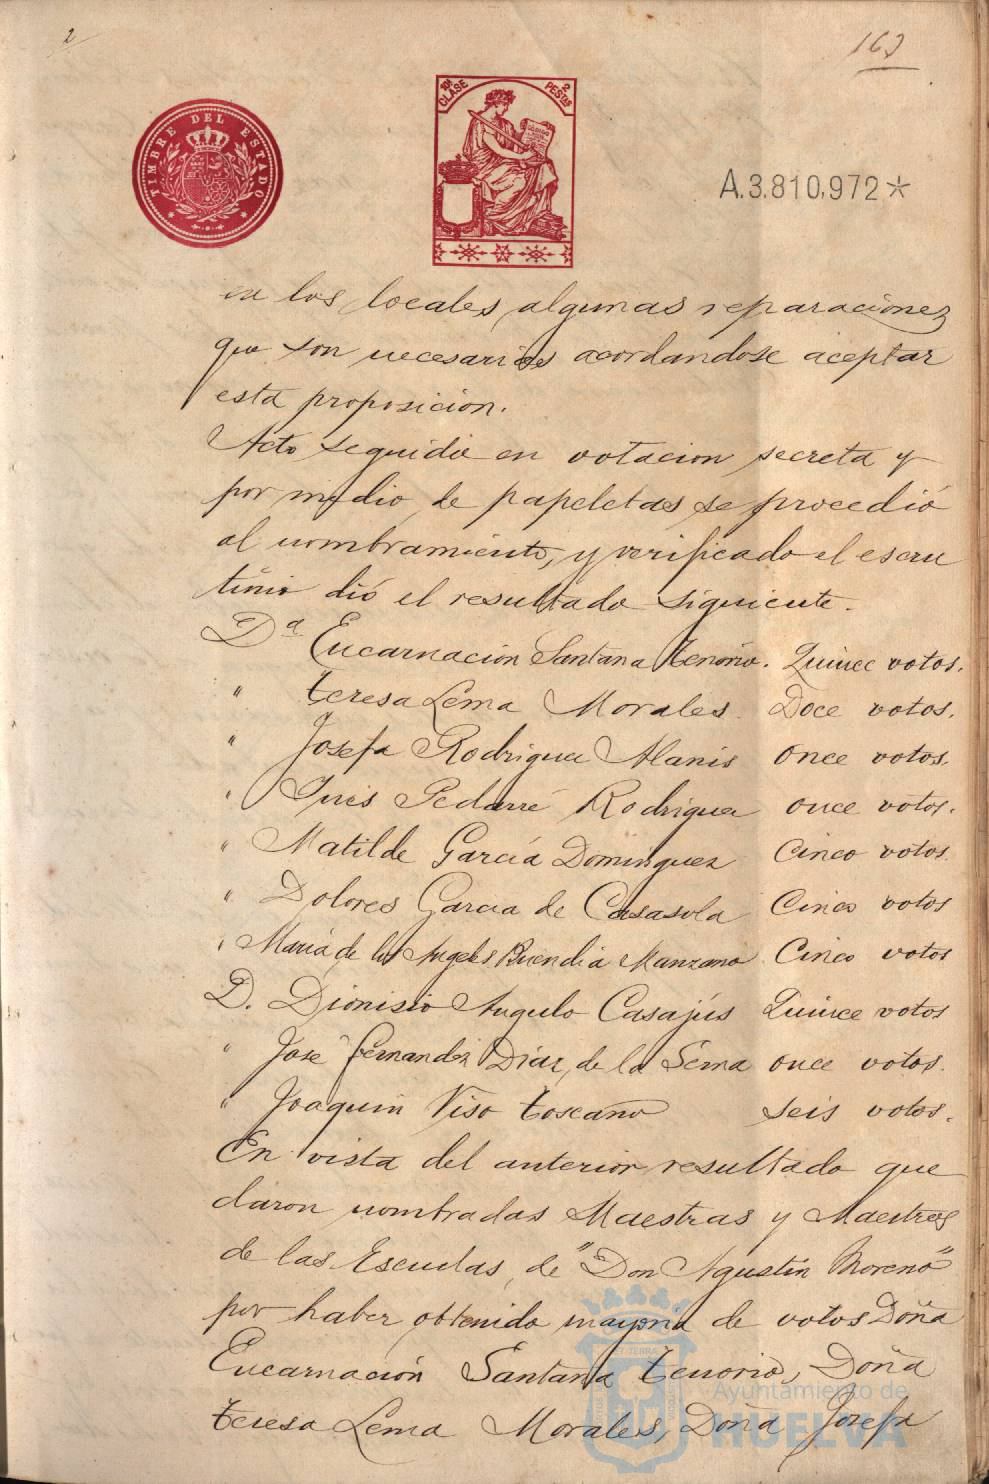 2
163
TIMBRE DEL ESTADO
10ª CLASE
2 PESTAS
A.3.810,972*
en los locales algunas reparaciones
que son necesarias acordandose aceptar
esta proposicion.
Acto seguido en votacion secreta y
por medio de papeletas se procedió
al nombramiento, y verificado el escru
tinio dió el resultado siguiente.
Dª Encarnación Santana Tenorio. Quince votos.
" Teresa Lema Morales Doce votos.
" Josefa Rodriguez Alanis Once votos.
" Inés Pedarré Rodriguez once votos.
" Matilde García Dominguez Cinco votos.
" Dolores Garcia de Casasola Cinco votos
" María de los Angeles Buendia Manzano Cinco votos
D. Dionisio Angulo Casajús Quince votos
" José Fernandez Diaz, de la Serna once votos.
" Joaquin Viso Toscano seis votos.
En vista del anterior resultado que
daron nombradas Maestras y Maestros
de las Escuelas de "Don Agustin Moreno"
por haber obtenido mayoria de votos Doña
Encarnación Santana Tenorio, Doña
Teresa Lema Morales, Doña Josefa
Ayuntamiento de
HUELVA